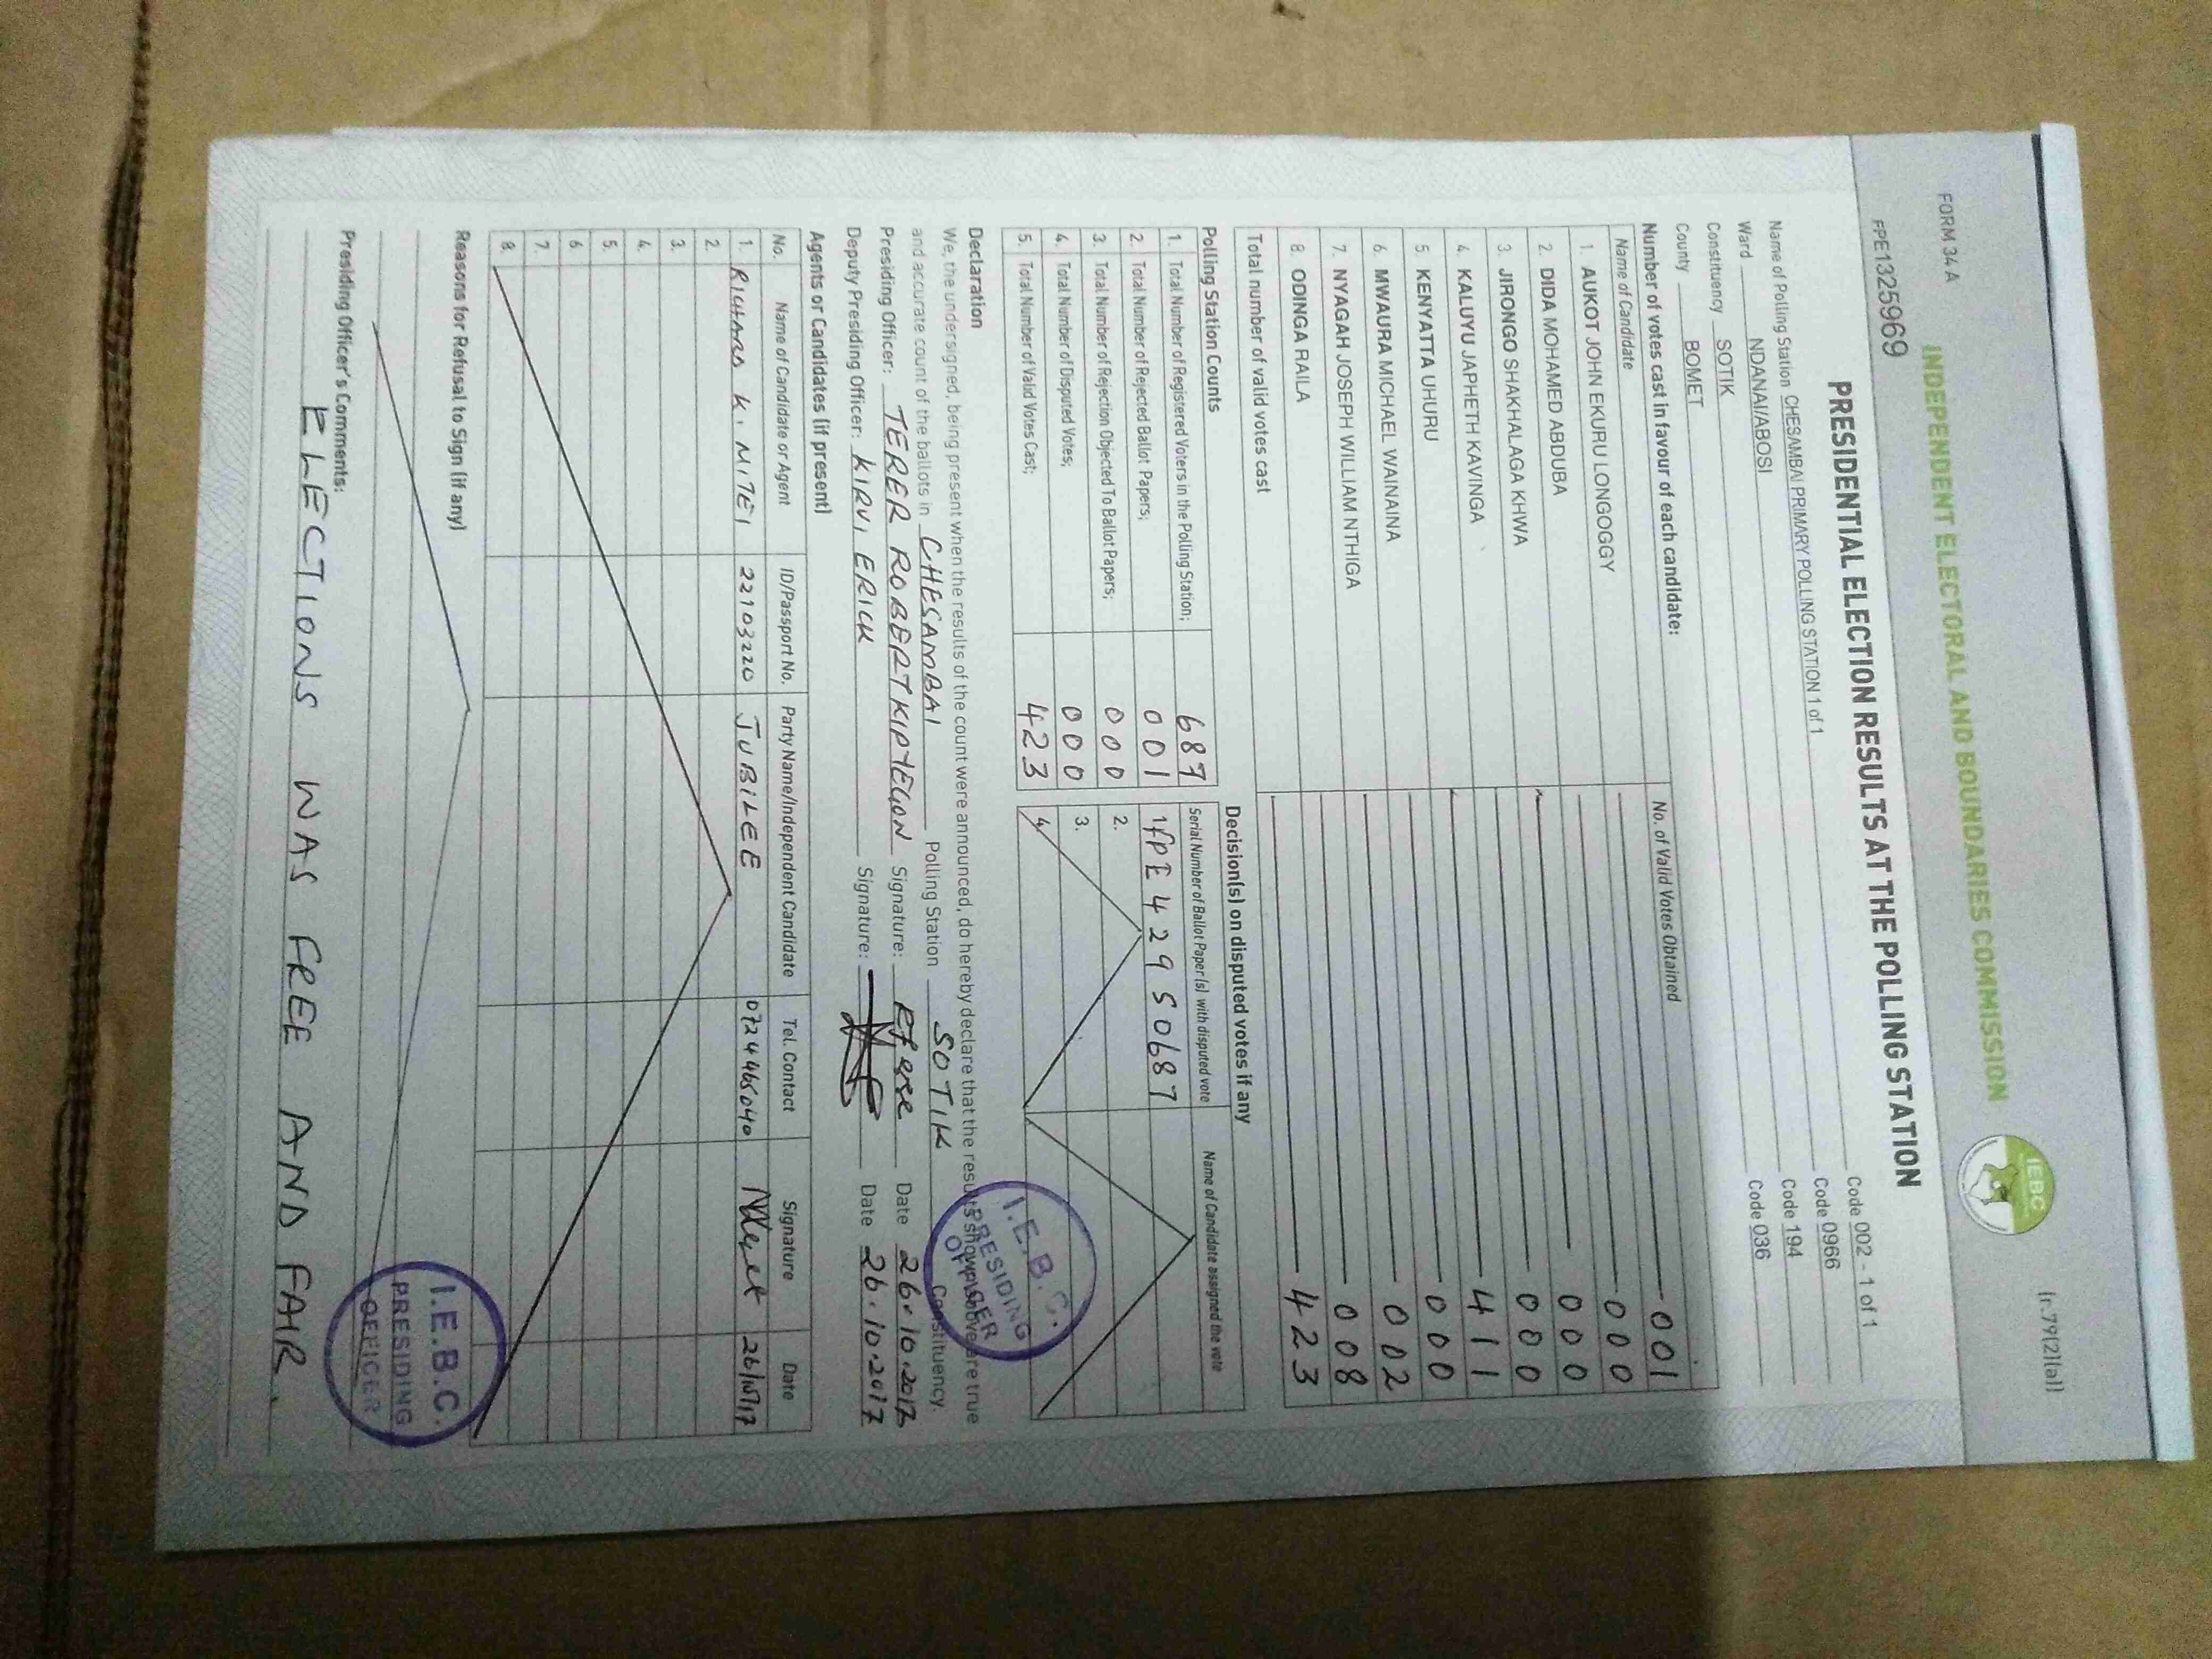 FORM 34 A
(r.79(2)(a))
INDEPENDENT ELECTORAL AND BOUNDARIES COMMISSION
IEBC
FPE1325969
PRESIDENTIAL ELECTION RESULTS AT THE POLLING STATION
Name of Polling Station CHESAMBAI PRIMARY POLLING STATION 1 of 1 Code 002 - 1 of 1
Ward NDANAI/ABOSI Code 0966
Constituency SOTIK Code 194
County BOMET Code 036
Number of votes cast in favour of each candidate:
Name of Candidate No. of Valid Votes Obtained
1. AUKOT JOHN EKURU LONGOGGY 001
2. DIDA MOHAMED ABDUBA 000
3. JIRONGO SHAKHALAGA KHWA 000
4. KALUYU JAPHETH KAVINGA 000
5. KENYATTA UHURU 411
6. MWAURA MICHAEL WAINAINA 000
7. NYAGAH JOSEPH WILLIAM NTHIGA 002
8. ODINGA RAILA 008
Total number of valid votes cast 423
Polling Station Counts
1. Total Number of Registered Voters in the Polling Station; 687
2. Total Number of Rejected Ballot Papers; 001
3. Total Number of Rejection Objected To Ballot Papers; 000
4. Total Number of Disputed Votes; 000
5. Total Number of Valid Votes Cast; 423
Decision(s) on disputed votes if any
Serial Number of Ballot Paper(s) with disputed vote Name of Candidate assigned the vote
1 FPE 429 50687
2.
3.
4.
Declaration
We, the undersigned, being present when the results of the count were announced, do hereby declare that the results shown above are true
and accurate count of the ballots in CHESAMBAI Polling Station SOTIK Constituency.
Presiding Officer: TERER ROBERT KIPYEGON Signature: Date 26.10.2017
Deputy Presiding Officer: KIRUI ERICK Signature: Date 26.10.2017
I.E.B.C.
PRESIDING
OFFICER
Agents or Candidates (if present)
No. Name of Candidate or Agent ID/Passport No. Party Name/Independent Candidate Tel. Contact Signature Date
1. RICHARD K. MITEI 22103220 JUBILEE 0724465040 26/10/17
2.
3.
4.
5.
6.
7.
8.
Reasons for Refusal to Sign (if any)
Presiding Officer's Comments:
ELECTIONS WAS FREE AND FAIR.
I.E.B.C.
PRESIDING
OFFICER